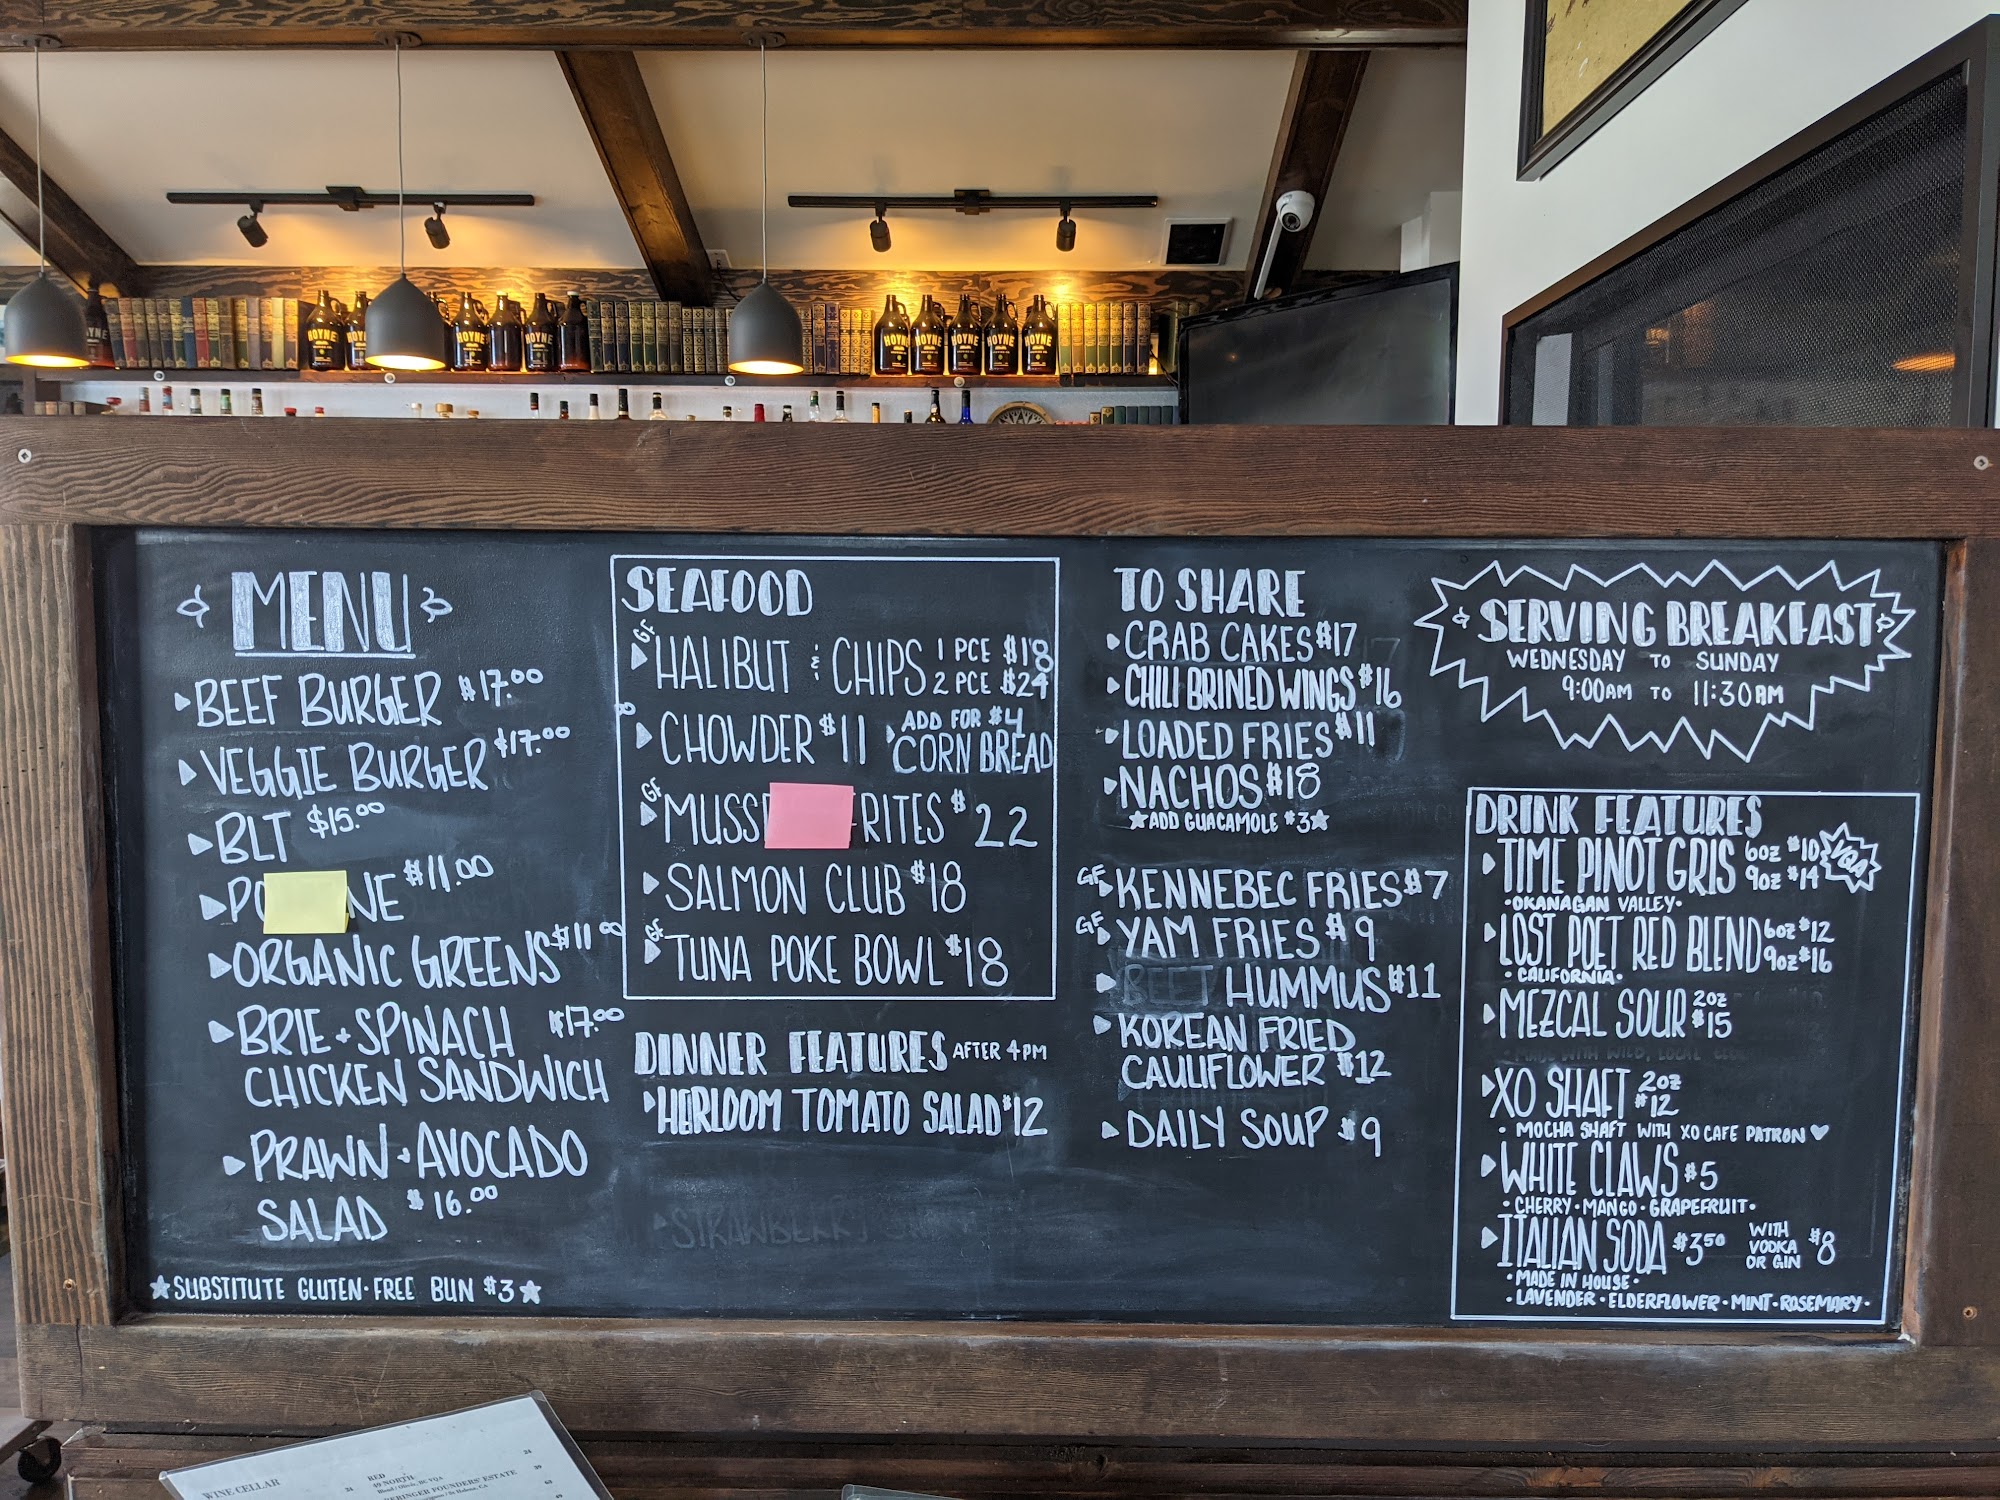 HOYNE
HOYNE
HOYNE
HOYNE
HOYNE
HOYNE
HOYNE
HOYNE
MENU
BEEF BURGER $17.00
VEGGIE BURGER $17.00
BLT $15.00
PO NE $11.00
ORGANIC GREENS $11.00
BRIE + SPINACH $17.00
CHICKEN SANDWICH
PRAWN + AVOCADO
SALAD $16.00
★ SUBSTITUTE GLUTEN-FREE BUN $3 ★
SEAFOOD
GF HALIBUT & CHIPS 1 PCE $18
2 PCE $24
CHOWDER $11 ADD FOR $4
CORN BREAD
GF MUSS RITES $22
SALMON CLUB $18
GF TUNA POKE BOWL $18
DINNER FEATURES AFTER 4PM
HEIRLOOM TOMATO SALAD $12
STRAWBERRY
TO SHARE
CRAB CAKES $17
CHILI BRINED WINGS $16
LOADED FRIES $11
NACHOS $18
★ ADD GUACAMOLE $3 ★
GF KENNEBEC FRIES $7
GF YAM FRIES $9
BEET HUMMUS $11
KOREAN FRIED
CAULIFLOWER $12
DAILY SOUP $9
SERVING BREAKFAST
WEDNESDAY TO SUNDAY
9:00AM TO 11:30AM
DRINK FEATURES
TIME PINOT GRIS 6oz $10
9oz $14
VQA
• OKANAGAN VALLEY •
LOST POET RED BLEND 6oz $12
9oz $16
• CALIFORNIA •
MEZCAL SOUR 2oz
$15
MADE WITH WILD, LOCAL
XO SHAFT 2oz
$12
• MOCHA SHAFT WITH XO CAFE PATRON ♡
WHITE CLAWS $5
• CHERRY • MANGO • GRAPEFRUIT •
ITALIAN SODA $3.50 WITH
VODKA
OR GIN $8
• MADE IN HOUSE •
• LAVENDER • ELDERFLOWER • MINT • ROSEMARY •
WINE CELLAR
RED
49 NORTH
24
BERINGER FOUNDERS' ESTATE